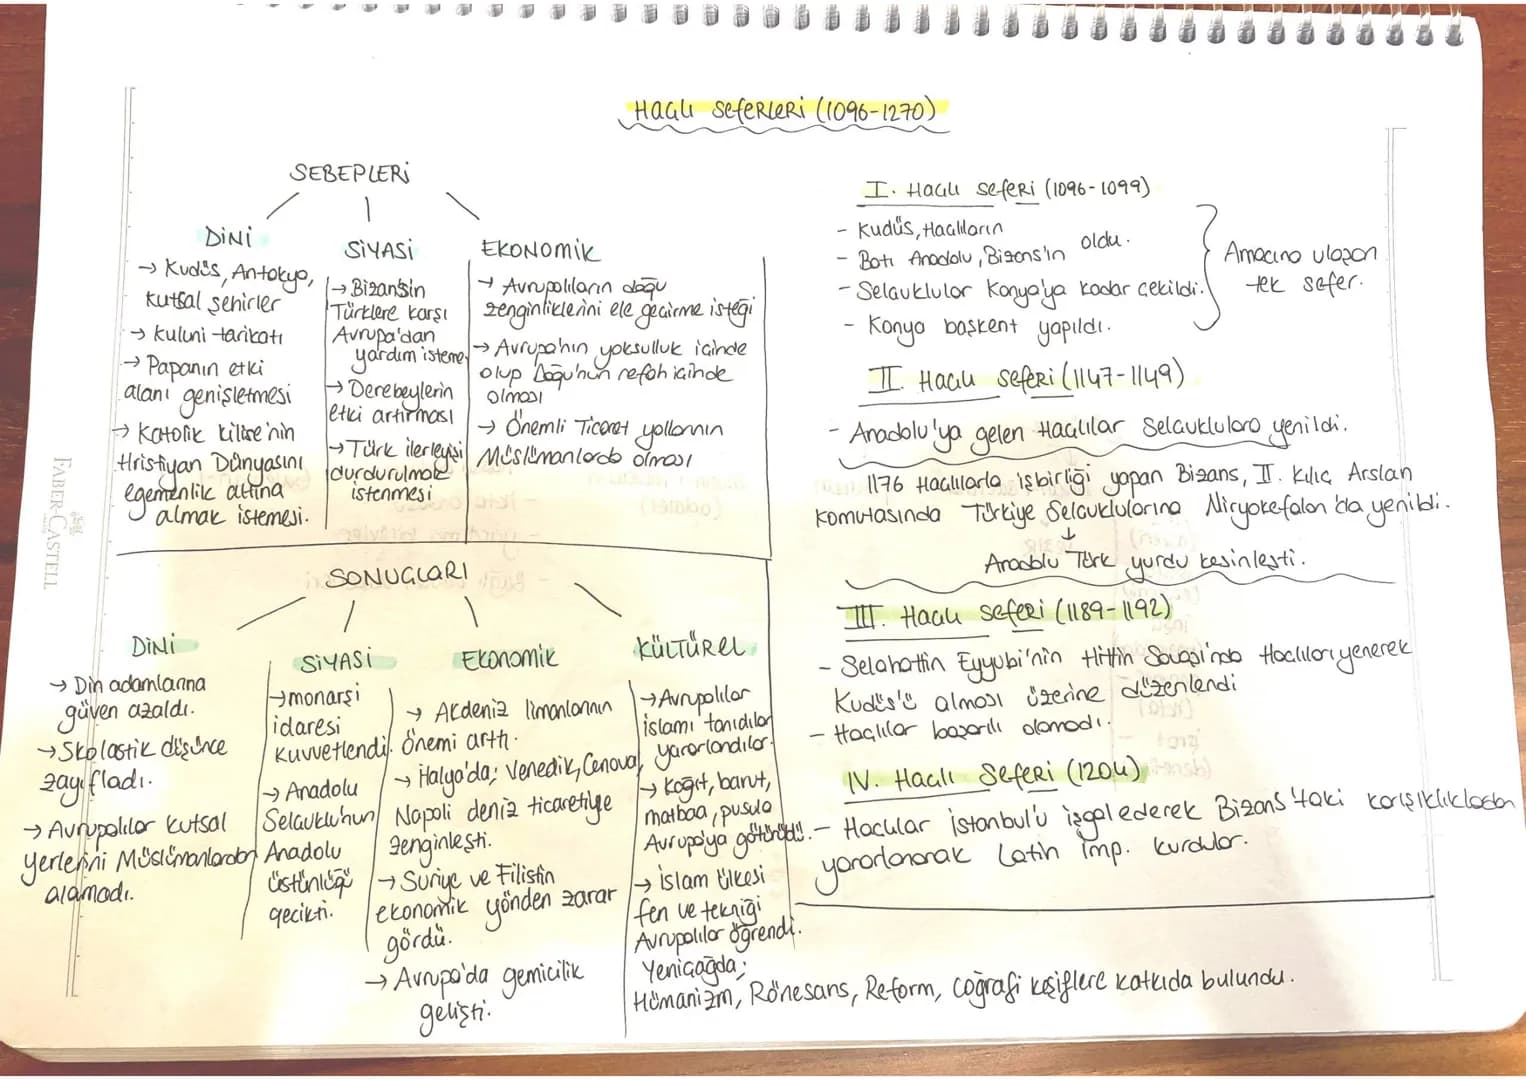 Haçlı Seferleri (1096-1270)
SEBEPLERİ
DİNİ
→ Kudüs, Antakya,
kutsal şehirler
→ kuluni tarikatı
→ Papanın etki
alanı genişletmesi
→ Katolik kilise'nin
Hristiyan Dünyasını
egemenlik altına
almak istemesi.
SİYASİ
→ Bizans'ın
Türklere karşı
Avrupa'dan
yardım isteme
→ Derebeylerin
etki artırması
→ Türk ilerleyişi
durdurulmak
istenmesi
EKONOMİK
→ Avrupalıların doğu
zenginliklerini ele geçirme isteği
→ Avrupa'nın yoksulluk içinde
olup Doğu'nun refah içinde
olması
→ Önemli Ticaret yollarının
Müslümanlarda olması
SONUÇLARI
DİNİ
→ Din adamlarına
güven azaldı.
→ Skolastik düşünce
zayıfladı.
→ Avrupalılar kutsal
yerlerini Müslümanlardan
alamadı.
SİYASİ
→ monarşi
idaresi
kuvvetlendi.
→ Anadolu
Selçuklu'nun
Anadolu
üstünlüğü
gecikti.
Ekonomik
→ Akdeniz limanlarının
önemi arttı.
→ İtalya'da; Venedik, Cenova,
Napoli deniz ticaretiyle
zenginleşti.
→ Suriye ve Filistin
ekonomik yönden zarar
gördü.
→ Avrupa'da gemicilik
gelişti.
KÜLTÜREL
→ Avrupalılar
islamı tanıdılar
yararlandılar.
→ Kağıt, barut,
matbaa, pusula
Avrupa'ya götürüldü.
→ İslam ülkesi
fen ve tekniği
Avrupalılar öğrendi.
Yeniçağda;
Hümanizm, Rönesans, Reform, coğrafi keşiflere katkıda bulundu.
I. Haçlı Seferi (1096-1099)
- Kudüs, Haçlıların
- Batı Anadolu, Bizans'ın oldu.
- Selçuklular Konya'ya kadar çekildi.
- Konya başkent yapıldı.
Amacına ulaşan
tek sefer.
II. Haçlı Seferi (1147-1149)
- Anadolu'ya gelen Haçlılar Selçuklulara yenildi.
1176 Haçlılarla işbirliği yapan Bizans, II. Kılıç Arslan
komutasında Türkiye Selçuklularına Miryokefalon'da yenildi.
↓
Anadolu Türk yurdu kesinleşti.
III. Haçlı Seferi (1189-1192)
- Selahattin Eyyubi'nin Hittin Savaşı'nda Haçlıları yenerek
Kudüs'ü alması üzerine düzenlendi
- Haçlılar başarılı olamadı.
IV. Haçlı Seferi (1204)
- Haçlılar İstanbul'u işgal ederek Bizans'taki karışıklıklardan
yararlanarak Latin imp. kurdular.
FABER-CASTELL